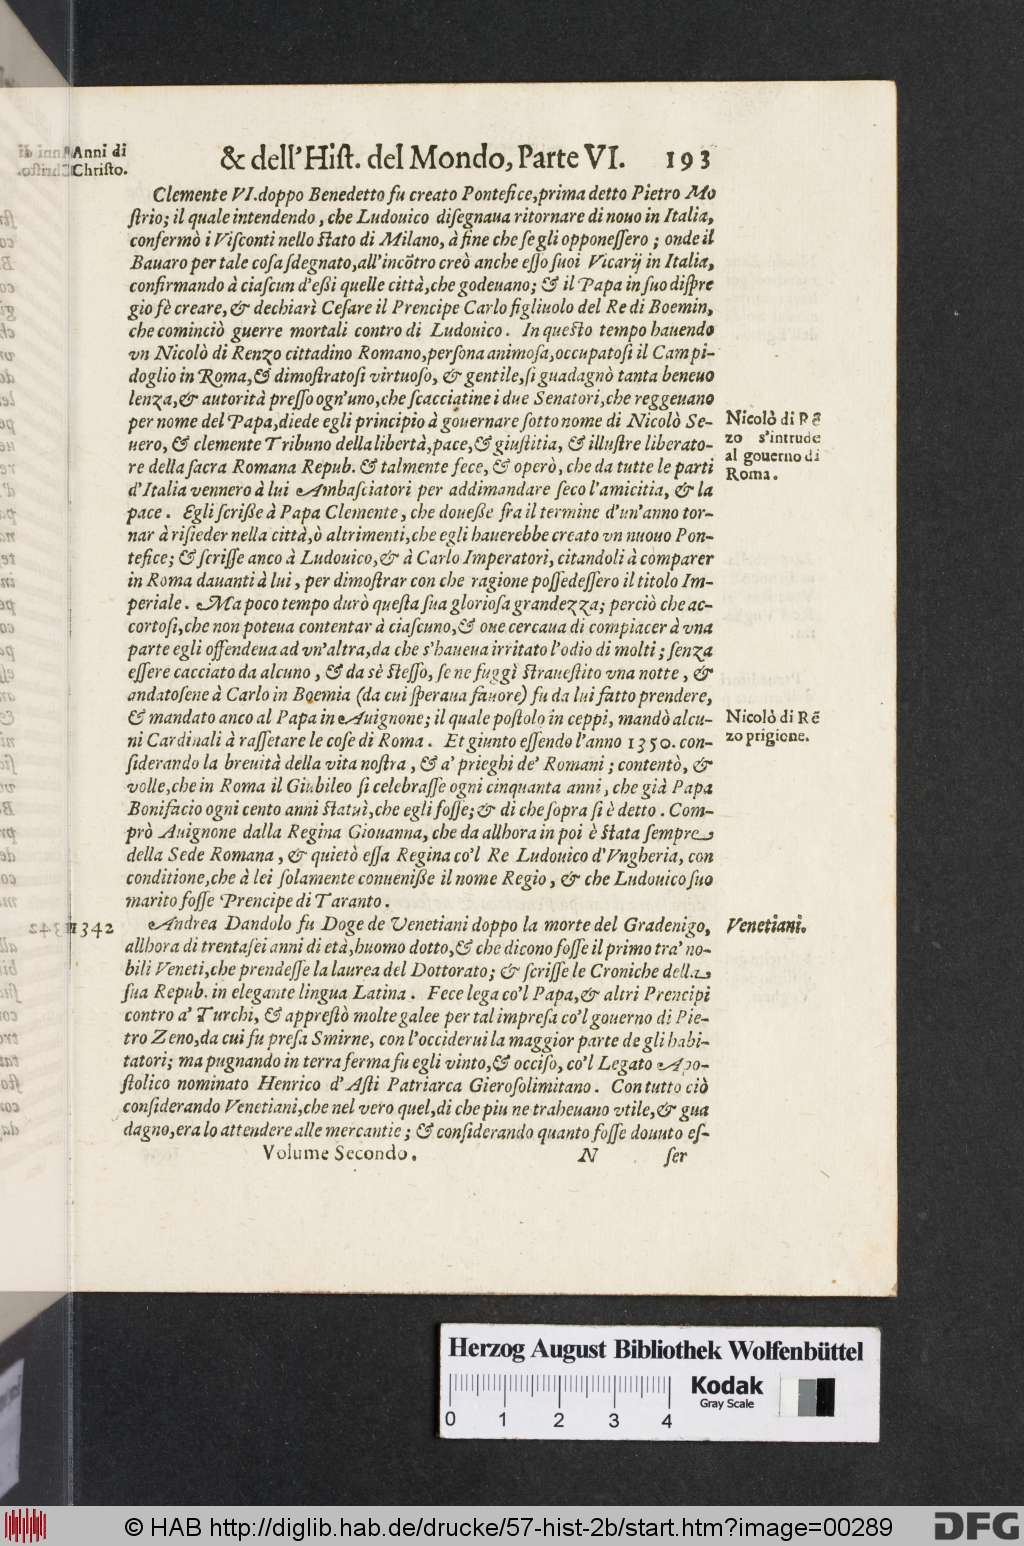 Anni di
Christo.
& dell'Hiſt. del Mondo, Parte VI. 193
Clemente VI. doppo Benedetto fu creato Pontefice, prima detto Pietro Mo
ſtrio; il quale intendendo, che Ludouico diſegnaua ritornare di nouo in Italia,
confermò i Viſconti nello ſtato di Milano, à fine che ſe gli opponeſſero; onde il
Bauaro per tale coſa ſdegnato, all'incōtro creò anche eſſo ſuoi Vicarij in Italia,
confirmando à ciaſcun d'eßi quelle città, che godeuano; & il Papa in ſuo diſpre
gio fè creare, & dechiarì Ceſare il Prencipe Carlo figliuolo del Re di Boemin,
che cominciò guerre mortali contro di Ludouico. In queſto tempo hauendo
vn Nicolò di Renzo cittadino Romano, perſona animoſa, occupatoſi il Campi-
doglio in Roma, & dimoſtratoſi virtuoſo, & gentile, ſi guadagnò tanta beneuo
lenza, & autorità preſſo ogn'uno, che ſcacciatine i due Senatori, che reggeuano
per nome del Papa, diede egli principio à gouernare ſotto nome di Nicolò Se-
uero, & clemente Tribuno della libertà, pace, & giuſtitia, & illuſtre liberato-
re della ſacra Romana Repub. & talmente fece, & operò, che da tutte le parti
d'Italia vennero à lui Ambaſciatori per addimandare ſeco l'amicitia, & la
pace. Egli ſcriße à Papa Clemente, che doueße fra il termine d'un'anno tor-
nar à riſieder nella città, ò altrimenti, che egli hauerebbe creato vn nuouo Pon-
tefice; & ſcriſſe anco à Ludouico, & à Carlo Imperatori, citandoli à comparer
in Roma dauanti à lui, per dimoſtrar con che ragione poſſedeſſero il titolo Im-
periale. Ma poco tempo durò queſta ſua glorioſa grandezza; perciò che ac-
cortoſi, che non poteua contentar à ciaſcuno, & oue cercaua di compiacer à vna
parte egli offendeua ad vn'altra, da che s'haueua irritato l'odio di molti; ſenza
eſſere cacciato da alcuno, & da sè ſteſſo, ſe ne fuggì ſtraueſtito vna notte, &
andatoſene à Carlo in Boemia (da cui ſperaua fauore) fu da lui fatto prendere,
& mandato anco al Papa in Auignone; il quale poſtolo in ceppi, mandò alcu-
ni Cardinali à raſſetare le coſe di Roma. Et giunto eſſendo l'anno 1350. con-
ſiderando la breuità della vita noſtra, & a' prieghi de' Romani; contentò, &
volle, che in Roma il Giubileo ſi celebraſſe ogni cinquanta anni, che già Papa
Bonifacio ogni cento anni ſtatuì, che egli foſſe; & di che ſopra ſi è detto. Com-
prò Auignone dalla Regina Giouanna, che da allhora in poi è ſtata ſempre
della Sede Romana, & quietò eſſa Regina co'l Re Ludouico d'Vngheria, con
conditione, che à lei ſolamente conueniße il nome Regio, & che Ludouico ſuo
marito foſſe Prencipe di Taranto.
Nicolò di Rẽ
zo s'intrude
al gouerno di
Roma.
Nicolò di Rẽ
zo prigione.
1342 Andrea Dandolo fu Doge de Venetiani doppo la morte del Gradenigo,
Venetiani.
allhora di trentaſei anni di età, huomo dotto, & che dicono foſſe il primo tra' no-
bili Veneti, che prendeſſe la laurea del Dottorato; & ſcriſſe le Croniche della
ſua Repub. in elegante lingua Latina. Fece lega co'l Papa, & altri Prencipi
contro a' Turchi, & appreſtò molte galee per tal impreſa co'l gouerno di Pie-
tro Zeno, da cui fu preſa Smirne, con l'occiderui la maggior parte de gli habi-
tatori; ma pugnando in terra ferma fu egli vinto, & occiſo, co'l Legato Apo-
ſtolico nominato Henrico d'Aſti Patriarca Gieroſolimitano. Con tutto ciò
conſiderando Venetiani, che nel vero quel, di che piu ne traheuano vtile, & gua
dagno, era lo attendere alle mercantie; & conſiderando quanto foſſe douuto eſ-
Volume Secondo. N ſer
Herzog August Bibliothek Wolfenbüttel
Kodak
Gray Scale
0 1 2 3 4
© HAB http://diglib.hab.de/drucke/57-hist-2b/start.htm?image=00289
DFG